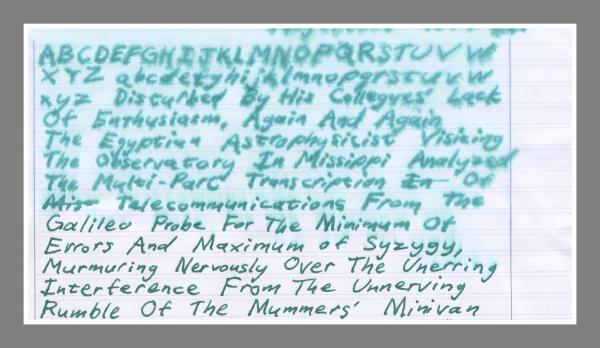 ABCDEFGHIJKLMNOPQRSTUVW
XYZ abcdefghijklmnopqrstuvw
xyz Disturbed By His Collegues' Lack
Of Enthusiasm, Again And Again
The Egyptian Astrophysicist Visiting
The Observatory In Missippi Analyzed
The Multi-Part Transcription In Of
Mis Telecommunications From The
Galileo Probe For The Minimum Of
Errors And Maximum of Syzygy,
Murmuring Nervously Over The Unerring
Interference From The Unnerving
Rumble Of The Mummers' Minivan